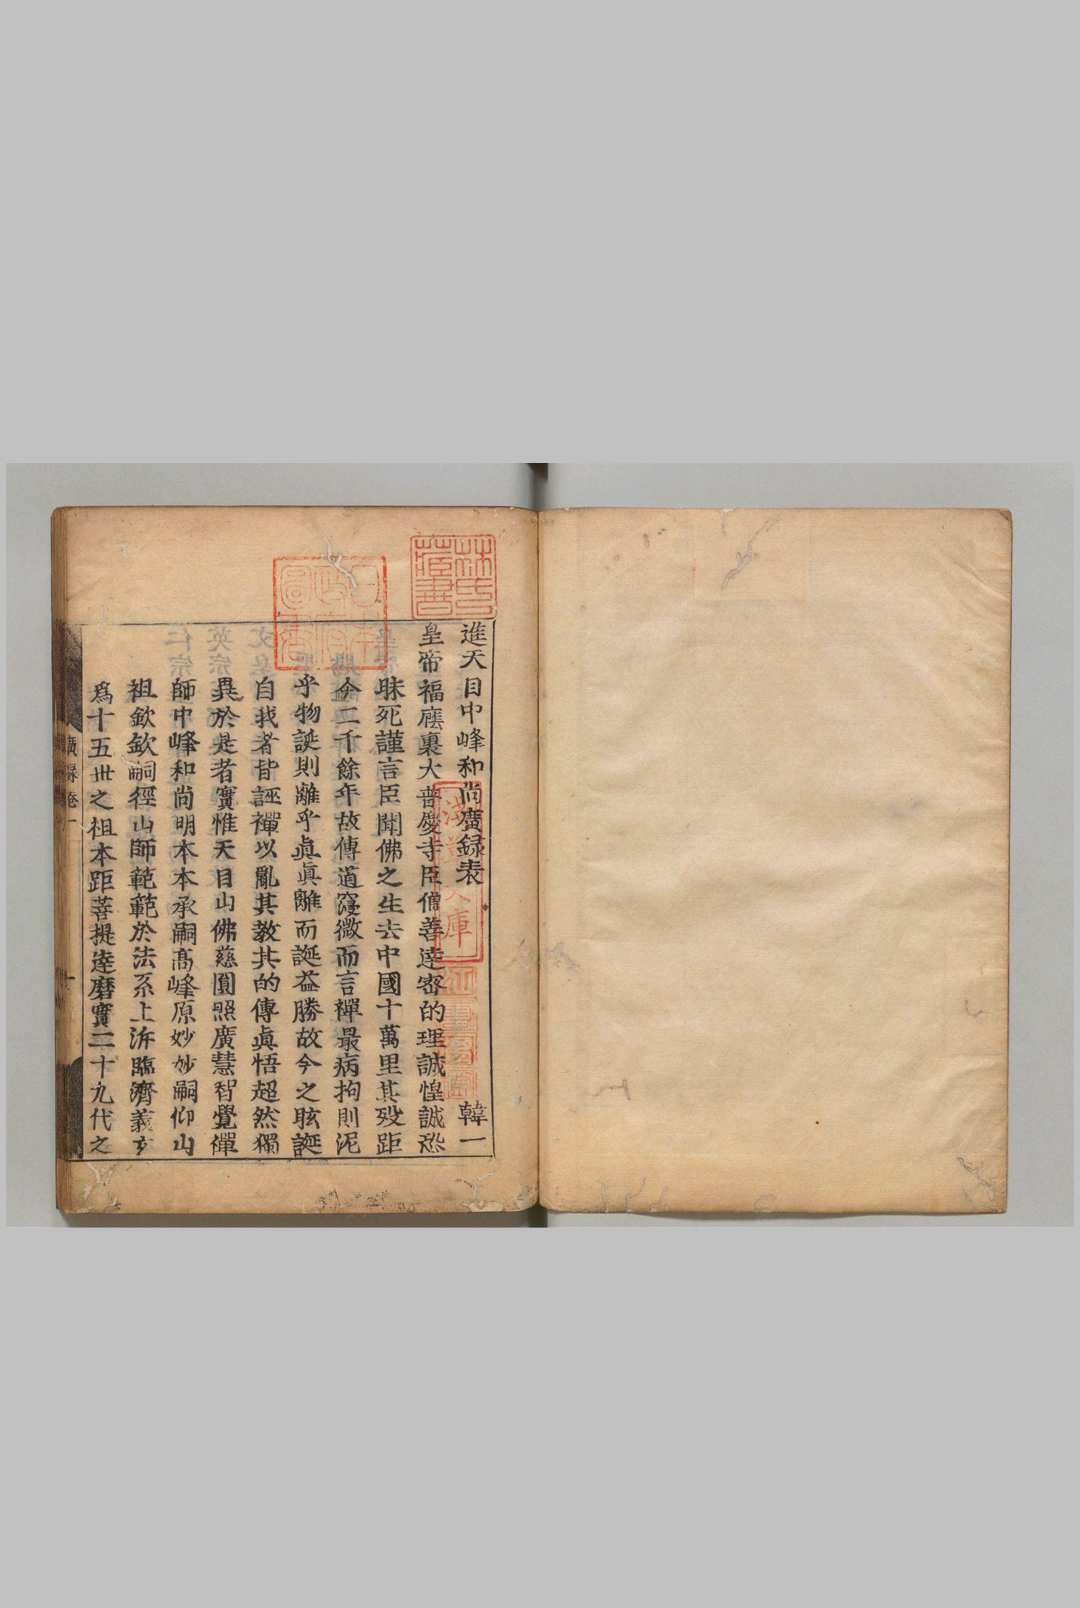 進天目中峰和尚廣録表 韓一
皇帝福廕裏大普慶寺臣僧善達密的理誠惶誠恐
昧死謹言臣聞佛之生去中國十萬里其歿距
今二千餘年故傳道寖微而言禪最病拘則泥
乎物誕則離乎眞眞離而誕益勝故今之眩誕
自我者皆誣禪以亂其教其的傳眞悟超然獨
異於是者實惟天目山佛慈圓照廣慧智覺禪
師中峰和尚明本本承嗣高峰原妙妙嗣仰山
祖欽欽嗣徑山師範範於法系上泝臨濟義玄
爲十五世之祖本距菩提達磨實二十九代之
廣録卷一
林氏
藏書
日本
政府
圖書
淺草文庫